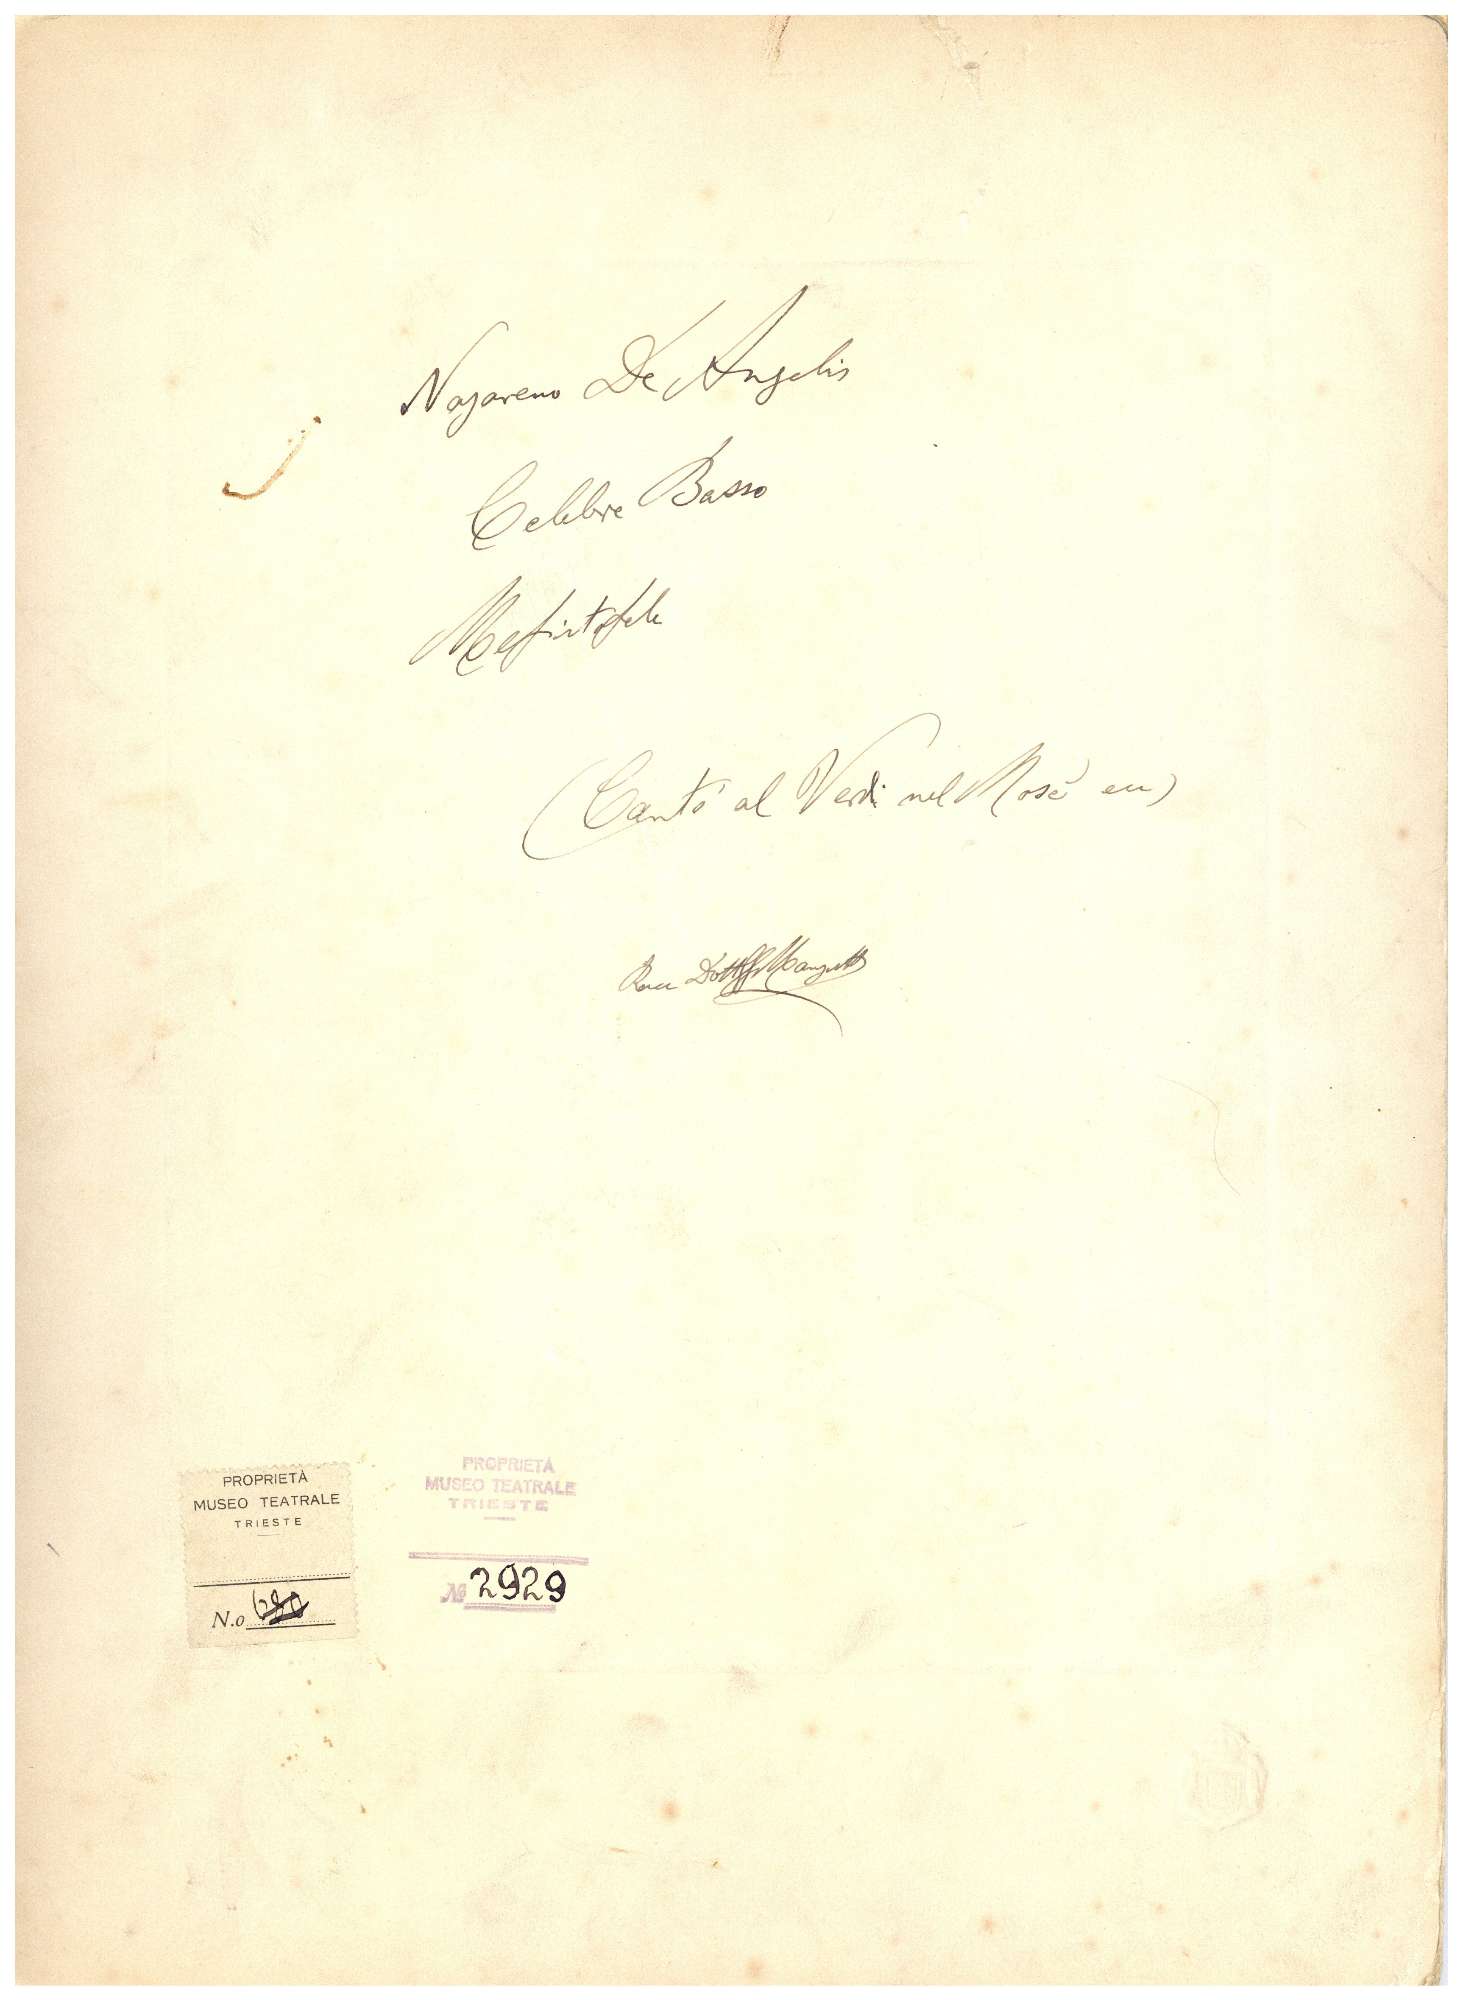 Nazareno De Angelis
Celebre Basso
Mefistofele
(Cantò al Verdi nel Mosé ecc)
Dott
PROPRIETÀ
MUSEO TEATRALE
TRIESTE
N.o 680
PROPRIETÀ
MUSEO TEATRALE
TRIESTE
No 2929